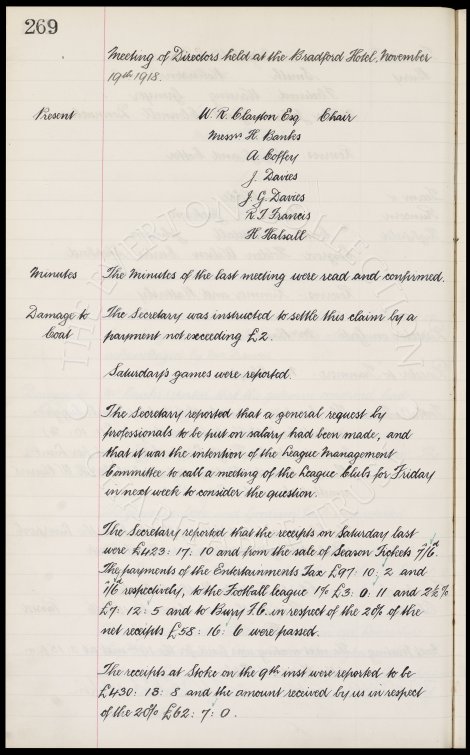 269
Meeting of Directors held at the Bradford Hotel, November
19th 1918.
Present W. R. Clayton Esq Chair
Messrs H. Banks
A. Coffey
J. Davies
J. G. Davies
R. T. Francis
H. Halsall
Minutes The Minutes of the last meeting were read and confirmed.
Damage to The Secretary was instructed to settle this claim by a
Coat payment not exceeding £2.
Saturday's games were reported.
The Secretary reported that a general request by
professionals to be put on salary had been made, and
that it was the intention of the League Management
Committee to call a meeting of the League Clubs for Friday
in next week to consider the question.
The Secretary reported that the receipts on Saturday last
were £423: 17: 10 and from the sale of Season Tickets 7/6d.
The payments of the Entertainments Tax £97: 10: 2 and
1/6d respectively, to the Football League 1% £3: 0: 11 and 2½%
£7: 12: 5 and to Bury F.C. in respect of the 20% of the
net receipts £58: 16: 6 were passed.
The receipts at Stoke on the 9th inst were reported to be
£430: 13: 8 and the amount received by us in respect
of the 20% £62: 7: 0.
THE EVERTON COLLECTION
CHARITABLE TRUST